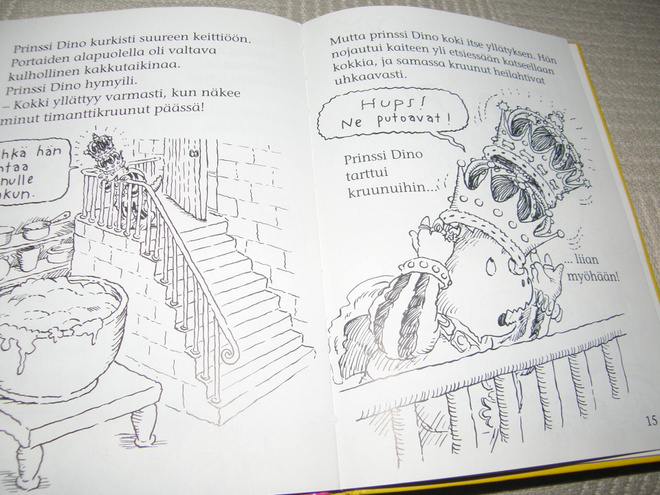 Prinssi Dino kurkisti suureen keittiöön.
Portaiden alapuolella oli valtava
kulhollinen kakkutaikinaa.
Prinssi Dino hymyili.
– Kokki yllättyy varmasti, kun näkee
minut timanttikruunut päässä!
hän
Mutta prinssi Dino koki itse yllätyksen. Hän
nojautui kaiteen yli etsiessään katseellaan
kokkia, ja samassa kruunut heilahtivat
uhkaavasti.
Hups!
Ne putoavat!
Prinssi Dino
tarttui
kruunuihin...
... liian
myöhään!
15